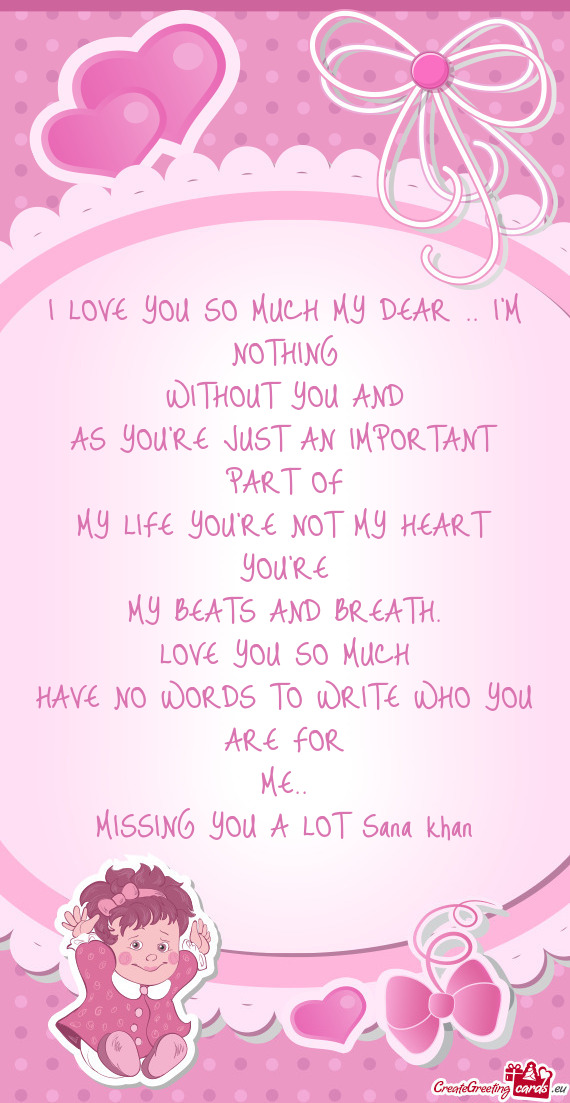 I LOVE YOU SO MUCH MY DEAR .. I'M
NOTHING
WITHOUT YOU AND
AS YOU'RE JUST AN IMPORTANT
PART OF
MY LIFE YOU'RE NOT MY HEART
YOU'RE
MY BEATS AND BREATH.
LOVE YOU SO MUCH
HAVE NO WORDS TO WRITE WHO YOU
ARE FOR
ME..
MISSING YOU A LOT Sana khan
CreateGreeting cards .eu